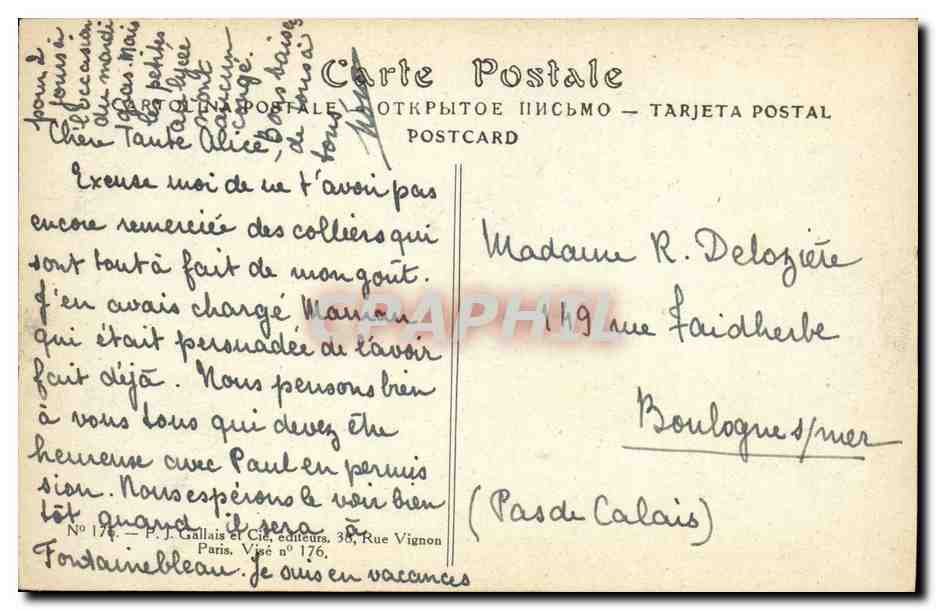 Carte Postale
CARTOLINA POSTALE — ОТКРЫТОЕ ПИСЬМО — TARJETA POSTAL
POSTCARD
Chère Tante Alice,
Excuse moi de ne t'avoir pas
encore remerciée des colliers qui
sont tout à fait de mon goût.
J'en avais chargé Maman
qui était persuadée de l'avoir
fait déjà. Nous pensons bien
à vous tous qui devez être
heureuse avec Paul en permis
sion. Nous espérons le voir bien
tôt quand il sera à
Fontainebleau. Je suis en vacances
pour 2
jours à
l'occasion
du mardi
gras. Mais
les petites
au lycée
n'ont
aucun
congé.
Bons baisers
de nous à
tous
Madame R. Delozière
149 rue Faidherbe
Boulogne s/mer
(Pas de Calais)
N° 176. — P. J. Gallais et Cie, éditeurs. 38, Rue Vignon
Paris. Visé n° 176.
CPAPHIL